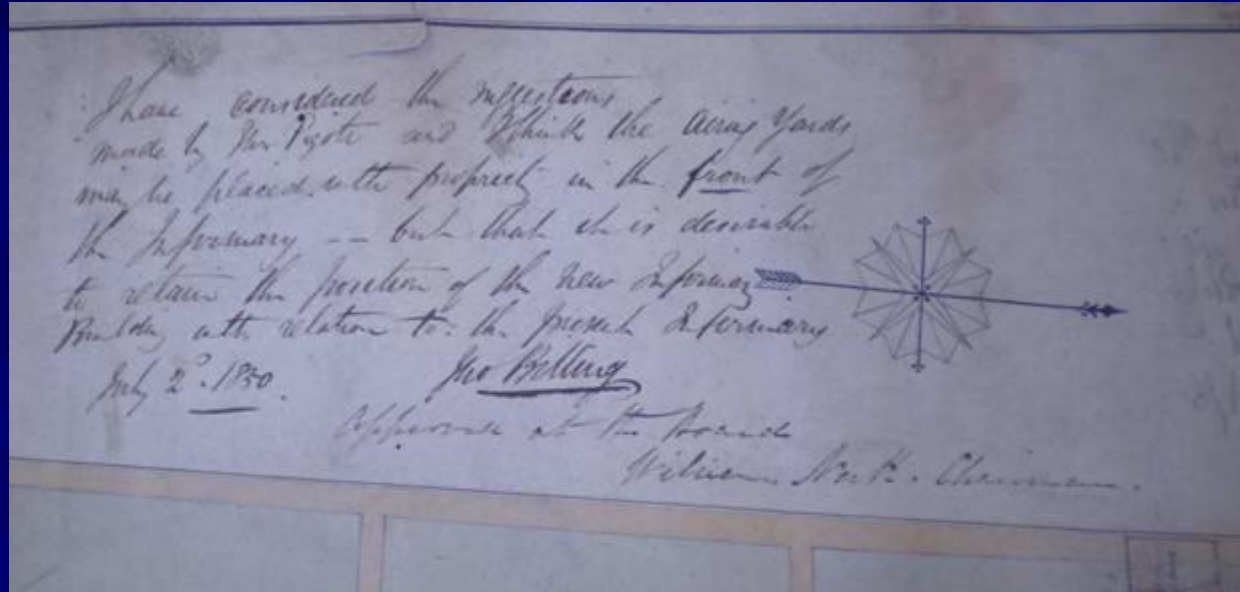 I have considered the suggestions
made by Mr Pigott and I think the Airing Yards
may be placed with propriety in the front of
the Infirmary -- but that it is desirable
to retain the position of the new Infirmary
Building with relation to the present Infirmary
July 2d. 1850.
Jno Billing
Approved at the Board
William Chairman.